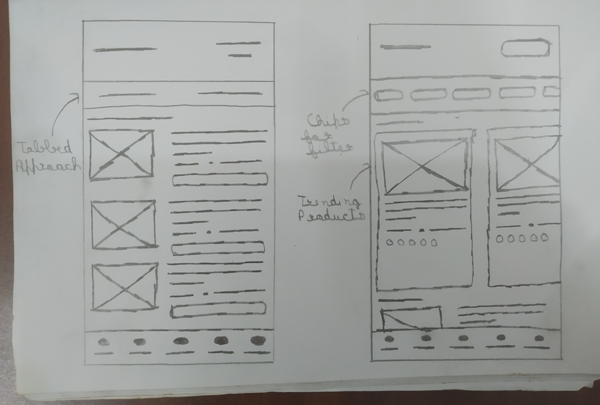 Tabbed
Approach
Chips
for
filter
Trending
Products